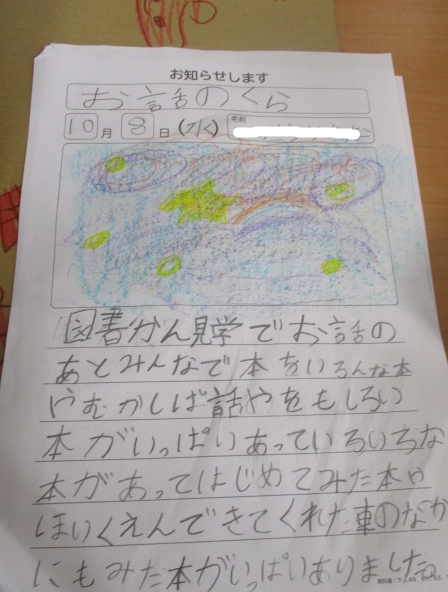 お知らせします
お話のくら
10月8日(水) 名前
図書かん見学でお話の
あとみんなで本をいろんな本
やむかしば話やをもしろい
本がいっぱいあっていろいろな
本があってはじめてみた本や
ほいくえんできてくれた車のなか
にもみた本がいっぱいありましたね